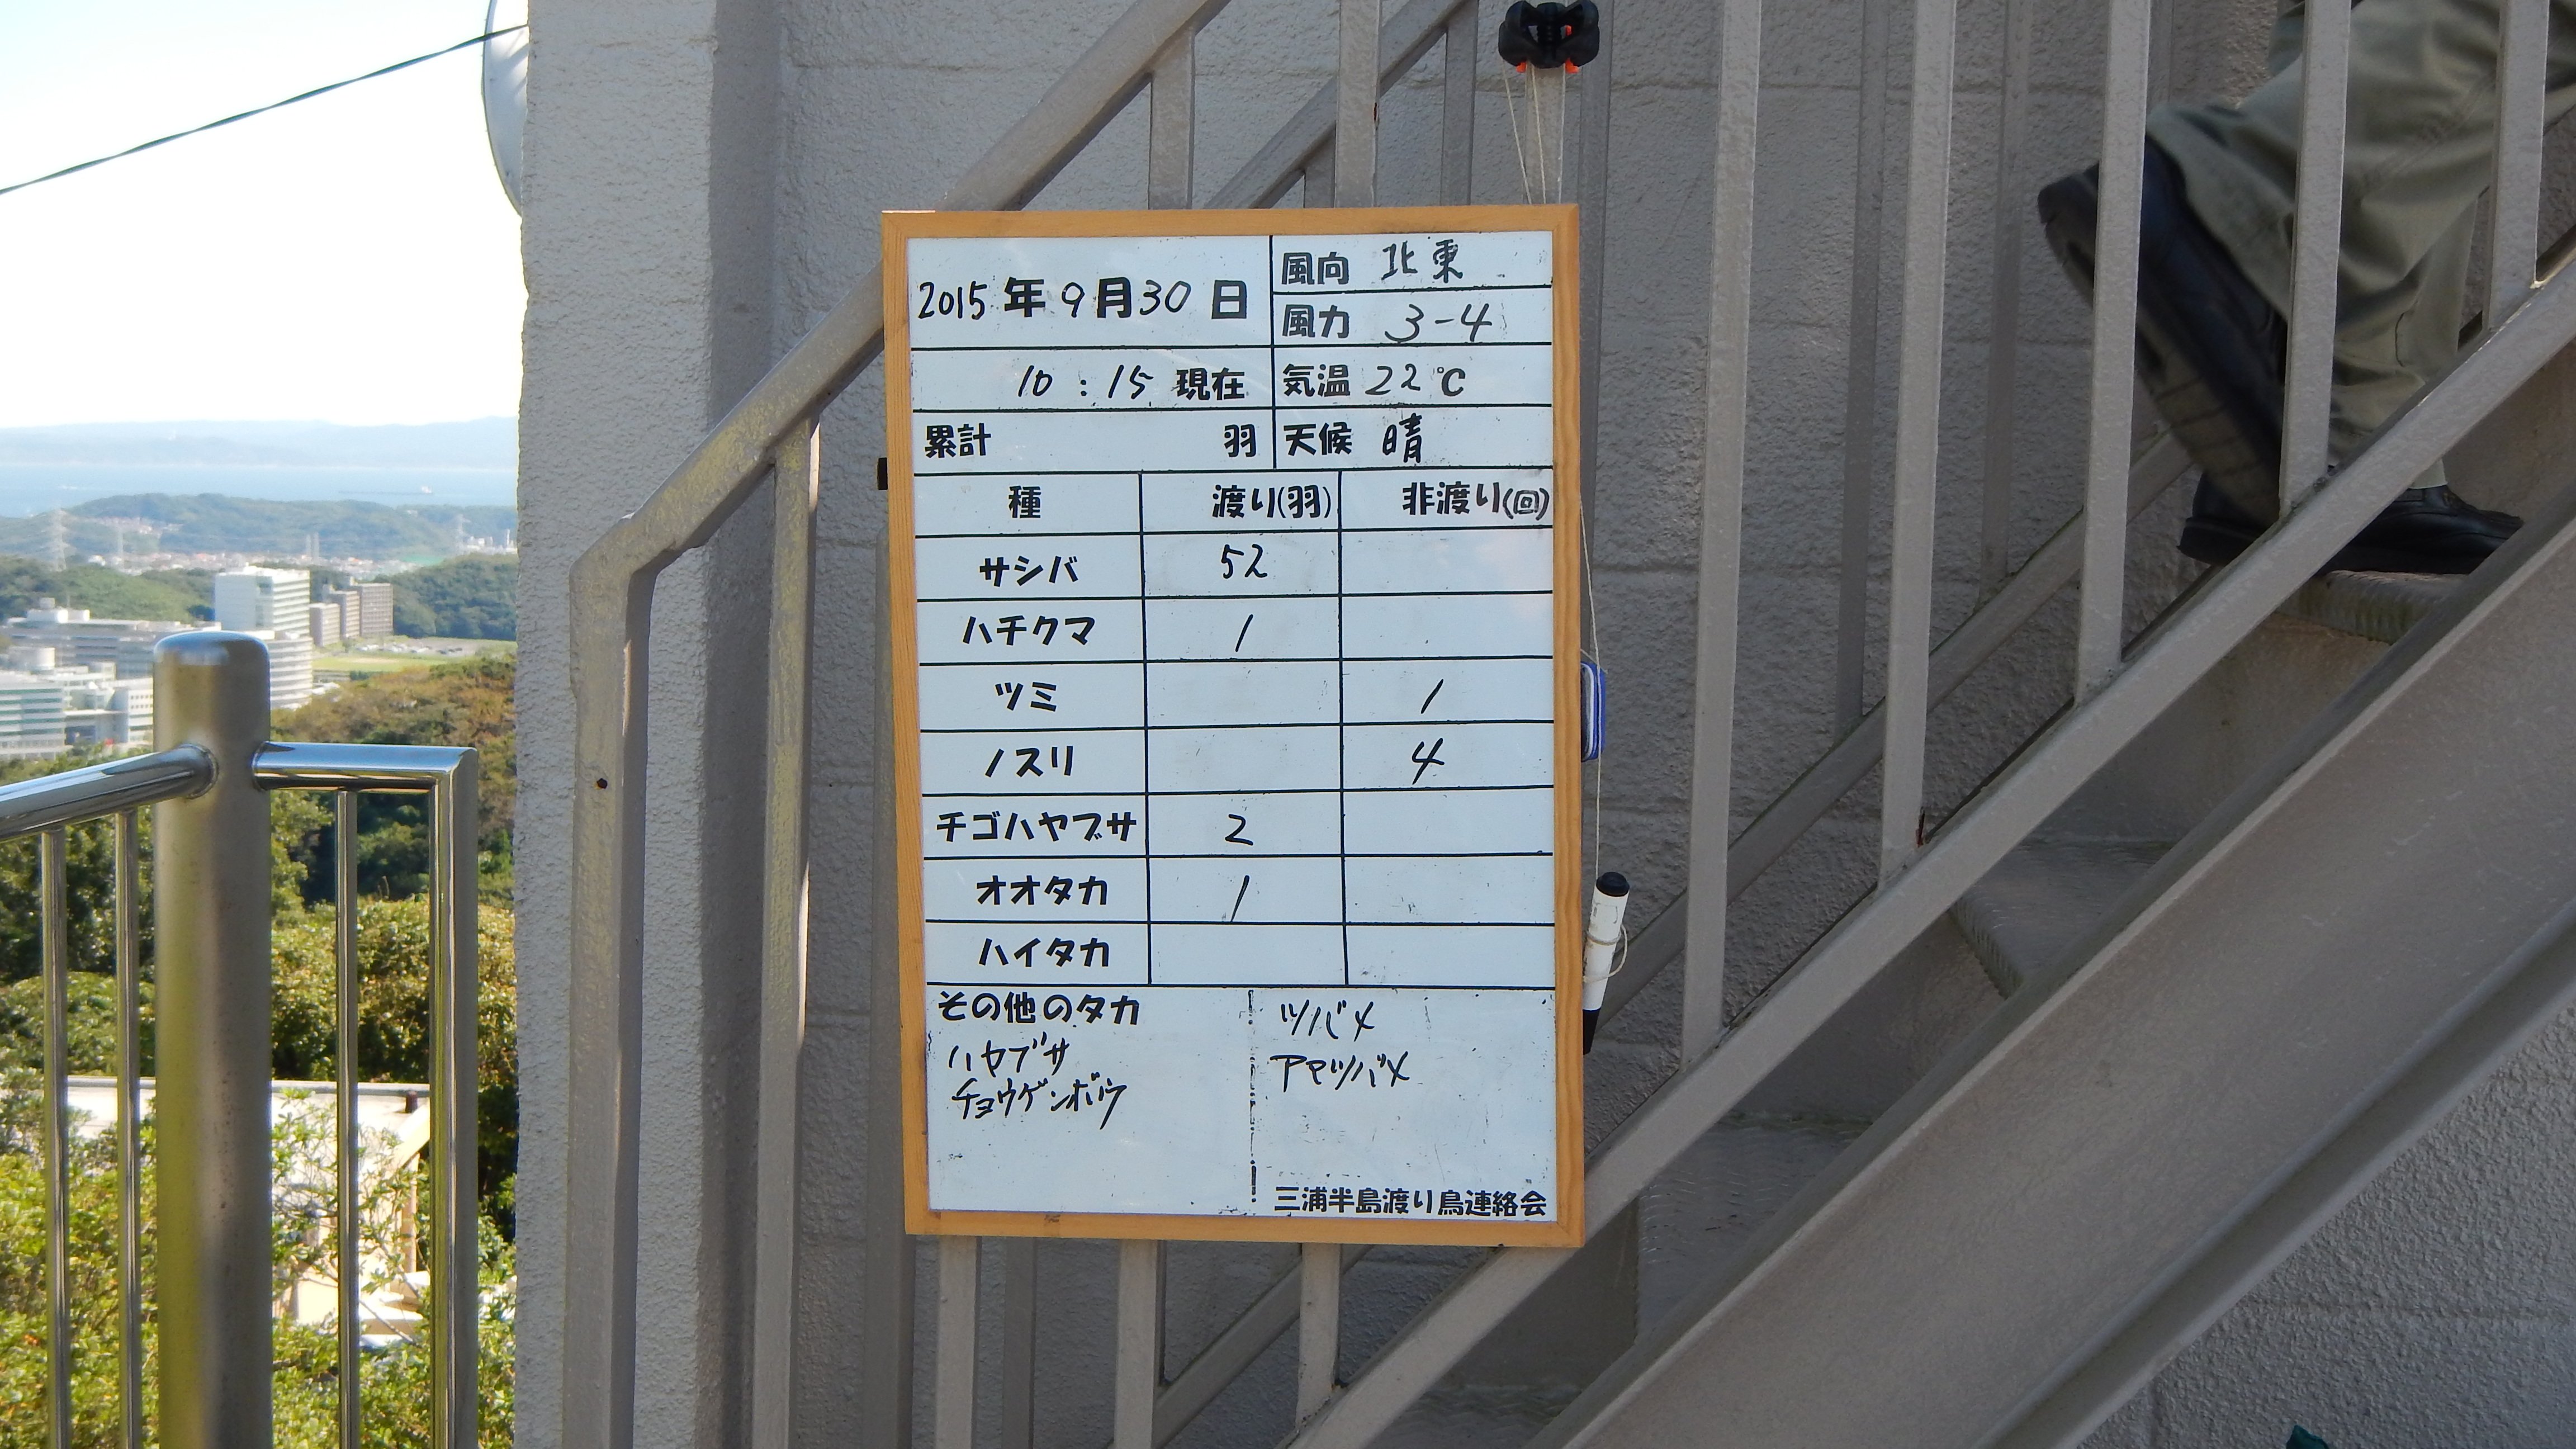 2015年9月30日
風向 北東
風力 3-4
10:15 現在
気温 22℃
累計 羽
天候 晴
種 渡り(羽) 非渡り(回)
サシバ 52
ハチクマ 1
ツミ 1
ノスリ 4
チゴハヤブサ 2
オオタカ 1
ハイタカ
その他のタカ
ハヤブサ
チョウゲンボウ
ツバメ
アマツバメ
三浦半島渡り鳥連絡会